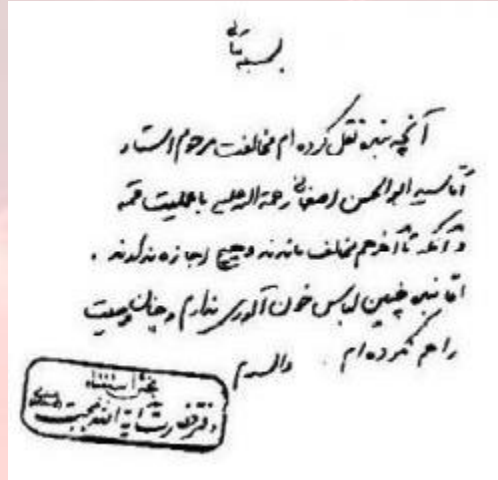 بسمه تعالی
آنچه بنده نقل کرده ام مخالفت مرحوم استاد
آقا سید ابوالحسن اصفهانی رحمة الله علیه با عملیت قمه
و آنکه تا آخر هم مخالف ماندند و هیچ اجازه ندادند .
اما بنده چنین لباس خون آلودی ندارم و چنان وصیت
را هم نکرده ام . والسلام
بخش استفتاء
دفتر حضرت آیة الله بهجت